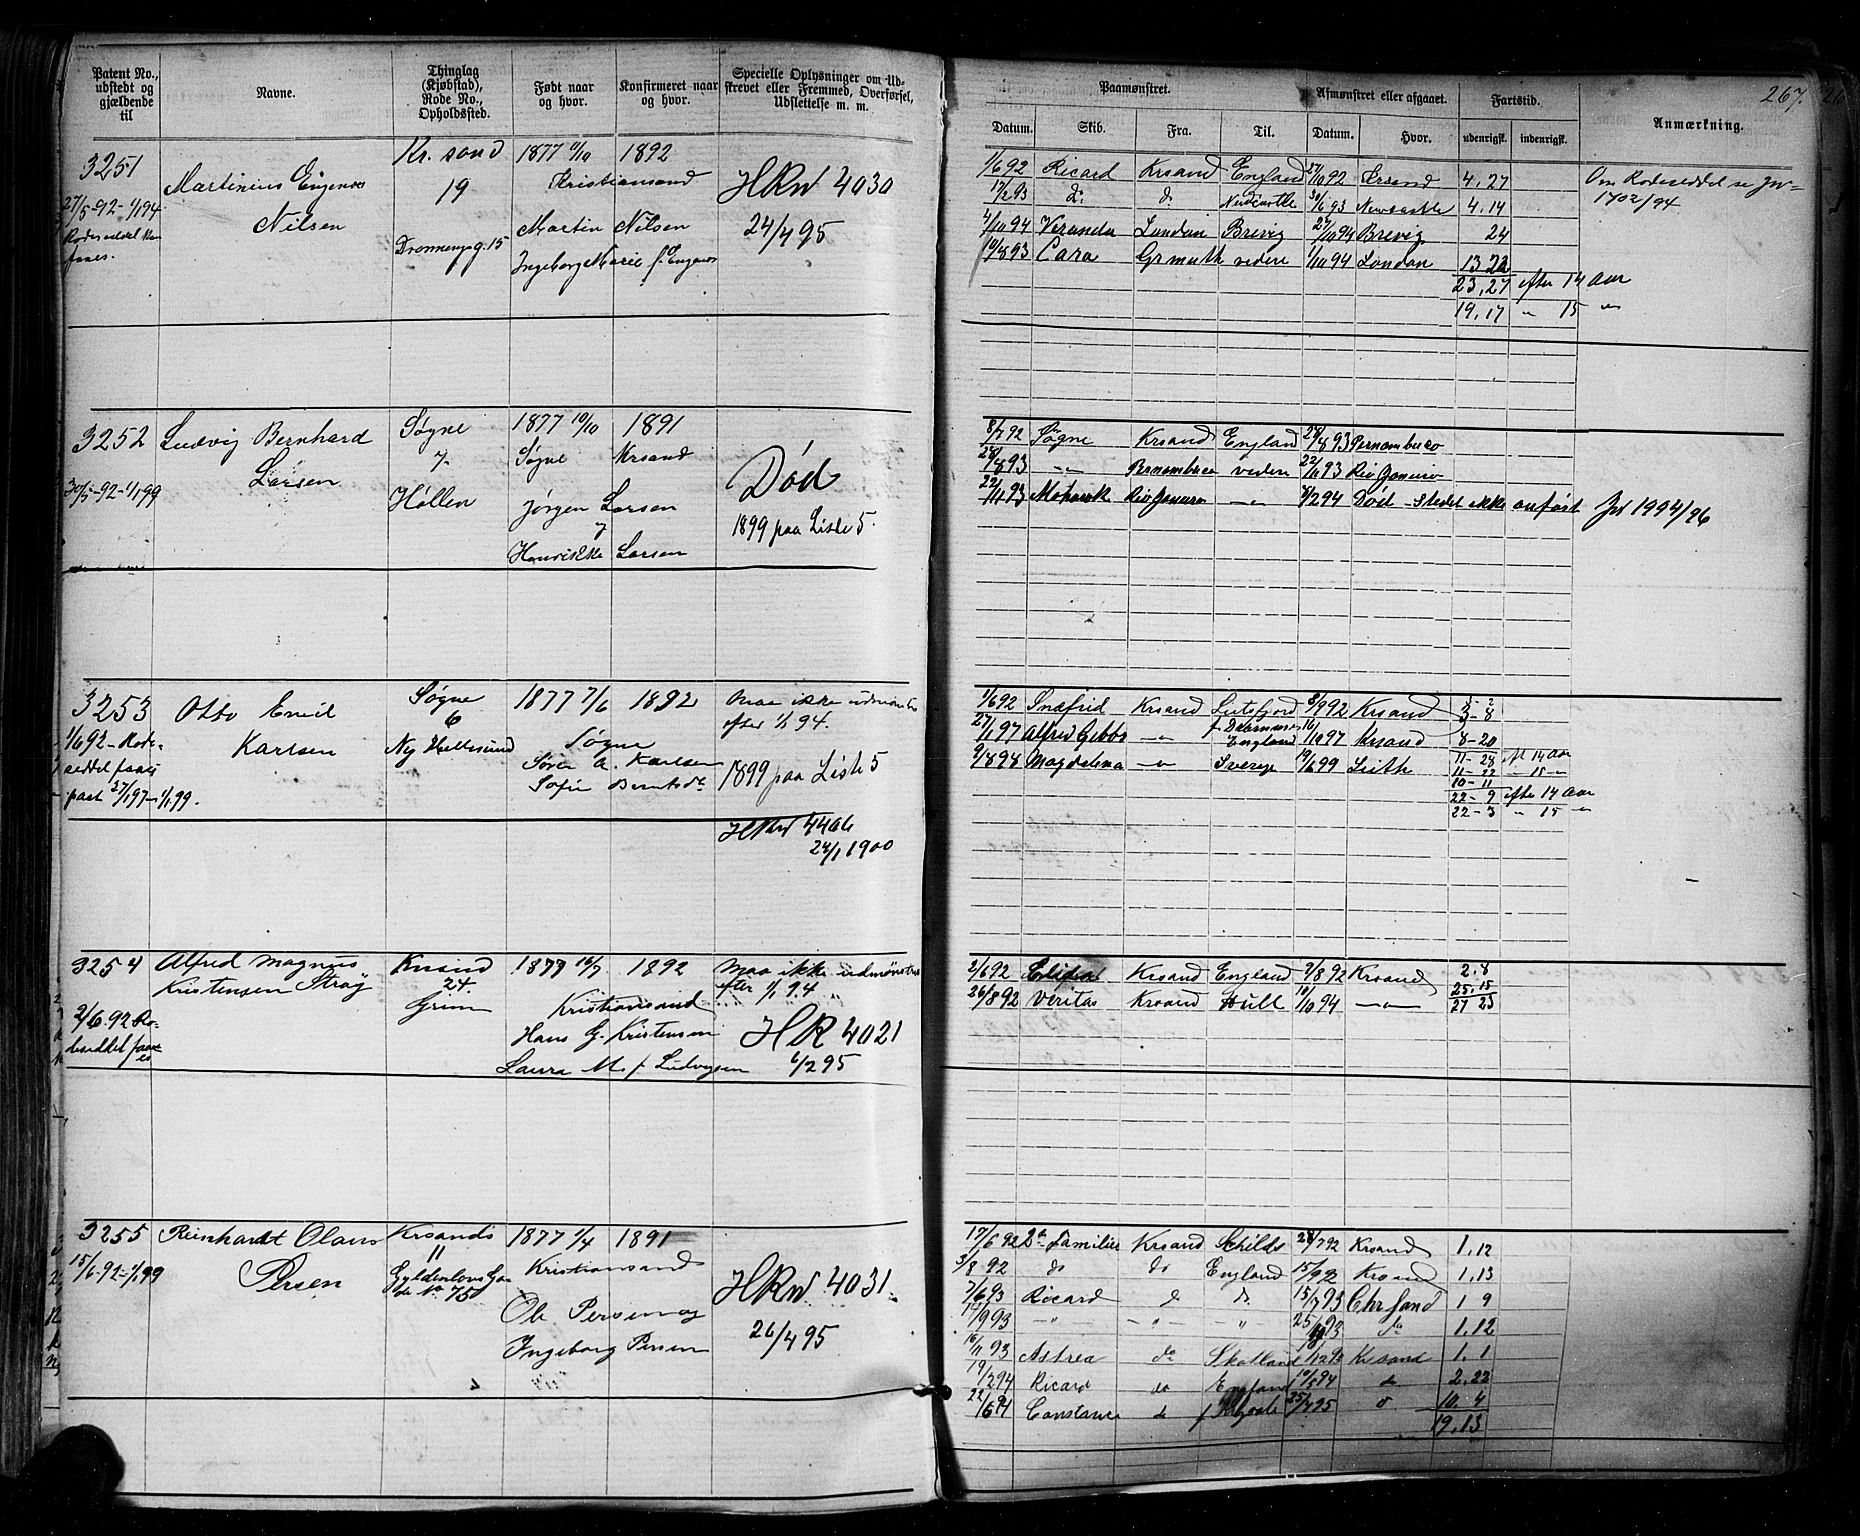 267.
Patent No., udstedt og gjældende til
Navne.
Thinglag (Kjøbstad), Rode No., Opholdssted.
Født naar og hvor.
Konfirmeret naar og hvor.
Specielle Oplysninger om Udskrevet eller Fremmed, Overførsel, Udslettelse m. m.
Paamønstret.
Afmønstret eller afgaaet.
Fartstid.
Anmærkning.
Datum. Skib. Fra. Til. Datum. Hvor. udenrigsk. indenrigsk.
3251
27/5-92-1/1 94
Rodeseddel
faaes.
Martinius
Nilsen
Kr. sand
19
Dronningg. 15
1877 1892
Kristiansand
Martin Nilsen
Ingeborg Marie f.
HRW 4030
24/4 95
1/6 92 Ricard Krsand England 27/10 92 Krsand 4.27
17/2 93 do do Newcastle 93 Newcastle 4.14
4/10 94 Veranda London Brevig 27/10 94 Brevig 24
10/8 93 Cara Grmuth videre 1/10 94 London 13 22
23.27 efter 14 Aar
19.17 " 15 "
Om Rodeseddel se
1702/94
3252
30/5-92-1/1 99
Ludvig Bernhard
Larsen
Søgne
7
Høllen
1877 19/10 1891
Søgne Krsand
Jørgen Larsen
Larsen
Død
1899 paa Liste 5.
8/7 92 Søgne Krsand England 28/8 93 Pernambuco
28/8 93 -"- Pernambuco videre 22/11 93 Rio Janeiro
22/11 93 Mohawk Rio Janeiro -"- 2 94 Død - Stedet ikke anført
Jnl 1994/96
3253
1/6 92 - Rode-
seddel faaes
paat 27/1 97-1/1 99.
Otto Emil
Karlsen
Søgne
6
Ny Hellesund
1877 7/6 1892
Søgne
Søren A. Karlsen
Sofie
Maa ikke udmønstres
efter 1/1 94.
1899 paa Liste 5
HRW 4406
24/1 1900
1/6 92 Snefrid Krsand 8/9 92 Krsand 3-8
27/1 97 Alfred Gibbs -"- England 16/10 97 Krsand 8-20
9/8 98 Magdalena -"- Sverige 19/6 99 Leith 11-28 eft 14 Aar
11-22 " 15 "
10-11
22-9 efter 14 Aar
22-3 " 15 "
3254
2/6-92 Ro-
deseddel faaes
Alfred Magnus
Kristensen Stray
Krsand
24.
Grim
1877 16/7 1892
Kristiansand
Hans G. Kristensen
Laura M. f. Ludvigsen
Maa ikke udmønstres
efter 1/1 94
HR 4021
6/2 95
2/6 92 Krsand England 9/8 92 Krsand 2.8
26/8 92 Veritas Krsand Hull 10/10 94 -"- 25.15
27 23
3255
15/6-92-1/1 99
Reinhardt Olaus
Persen
Krsands
11
Gyldenløvs Ga-
de No 75
1877 1/4 1891
Kristiansand
Ole Persen og
Ingeborg Persen
HRW 4031.
26/4 95
17/6 92 Familie Krsand Schilds 28/7 92 Krsand 1.12
3/8 92 do do England 15/9 92 Krsand 1.13
7/6 93 Ricard d. d. 15/7 93 Chrsand 1 9
14/9 93 -"- -"- " 25/10 93 do 1.12
16/11 93 Astrea do Skotland 12 93 Krsand 1.1
19/2 94 Ricard do England 10/5 94 do 2.22
22/6 94 Constance do 25/4 95 10.4
19.13